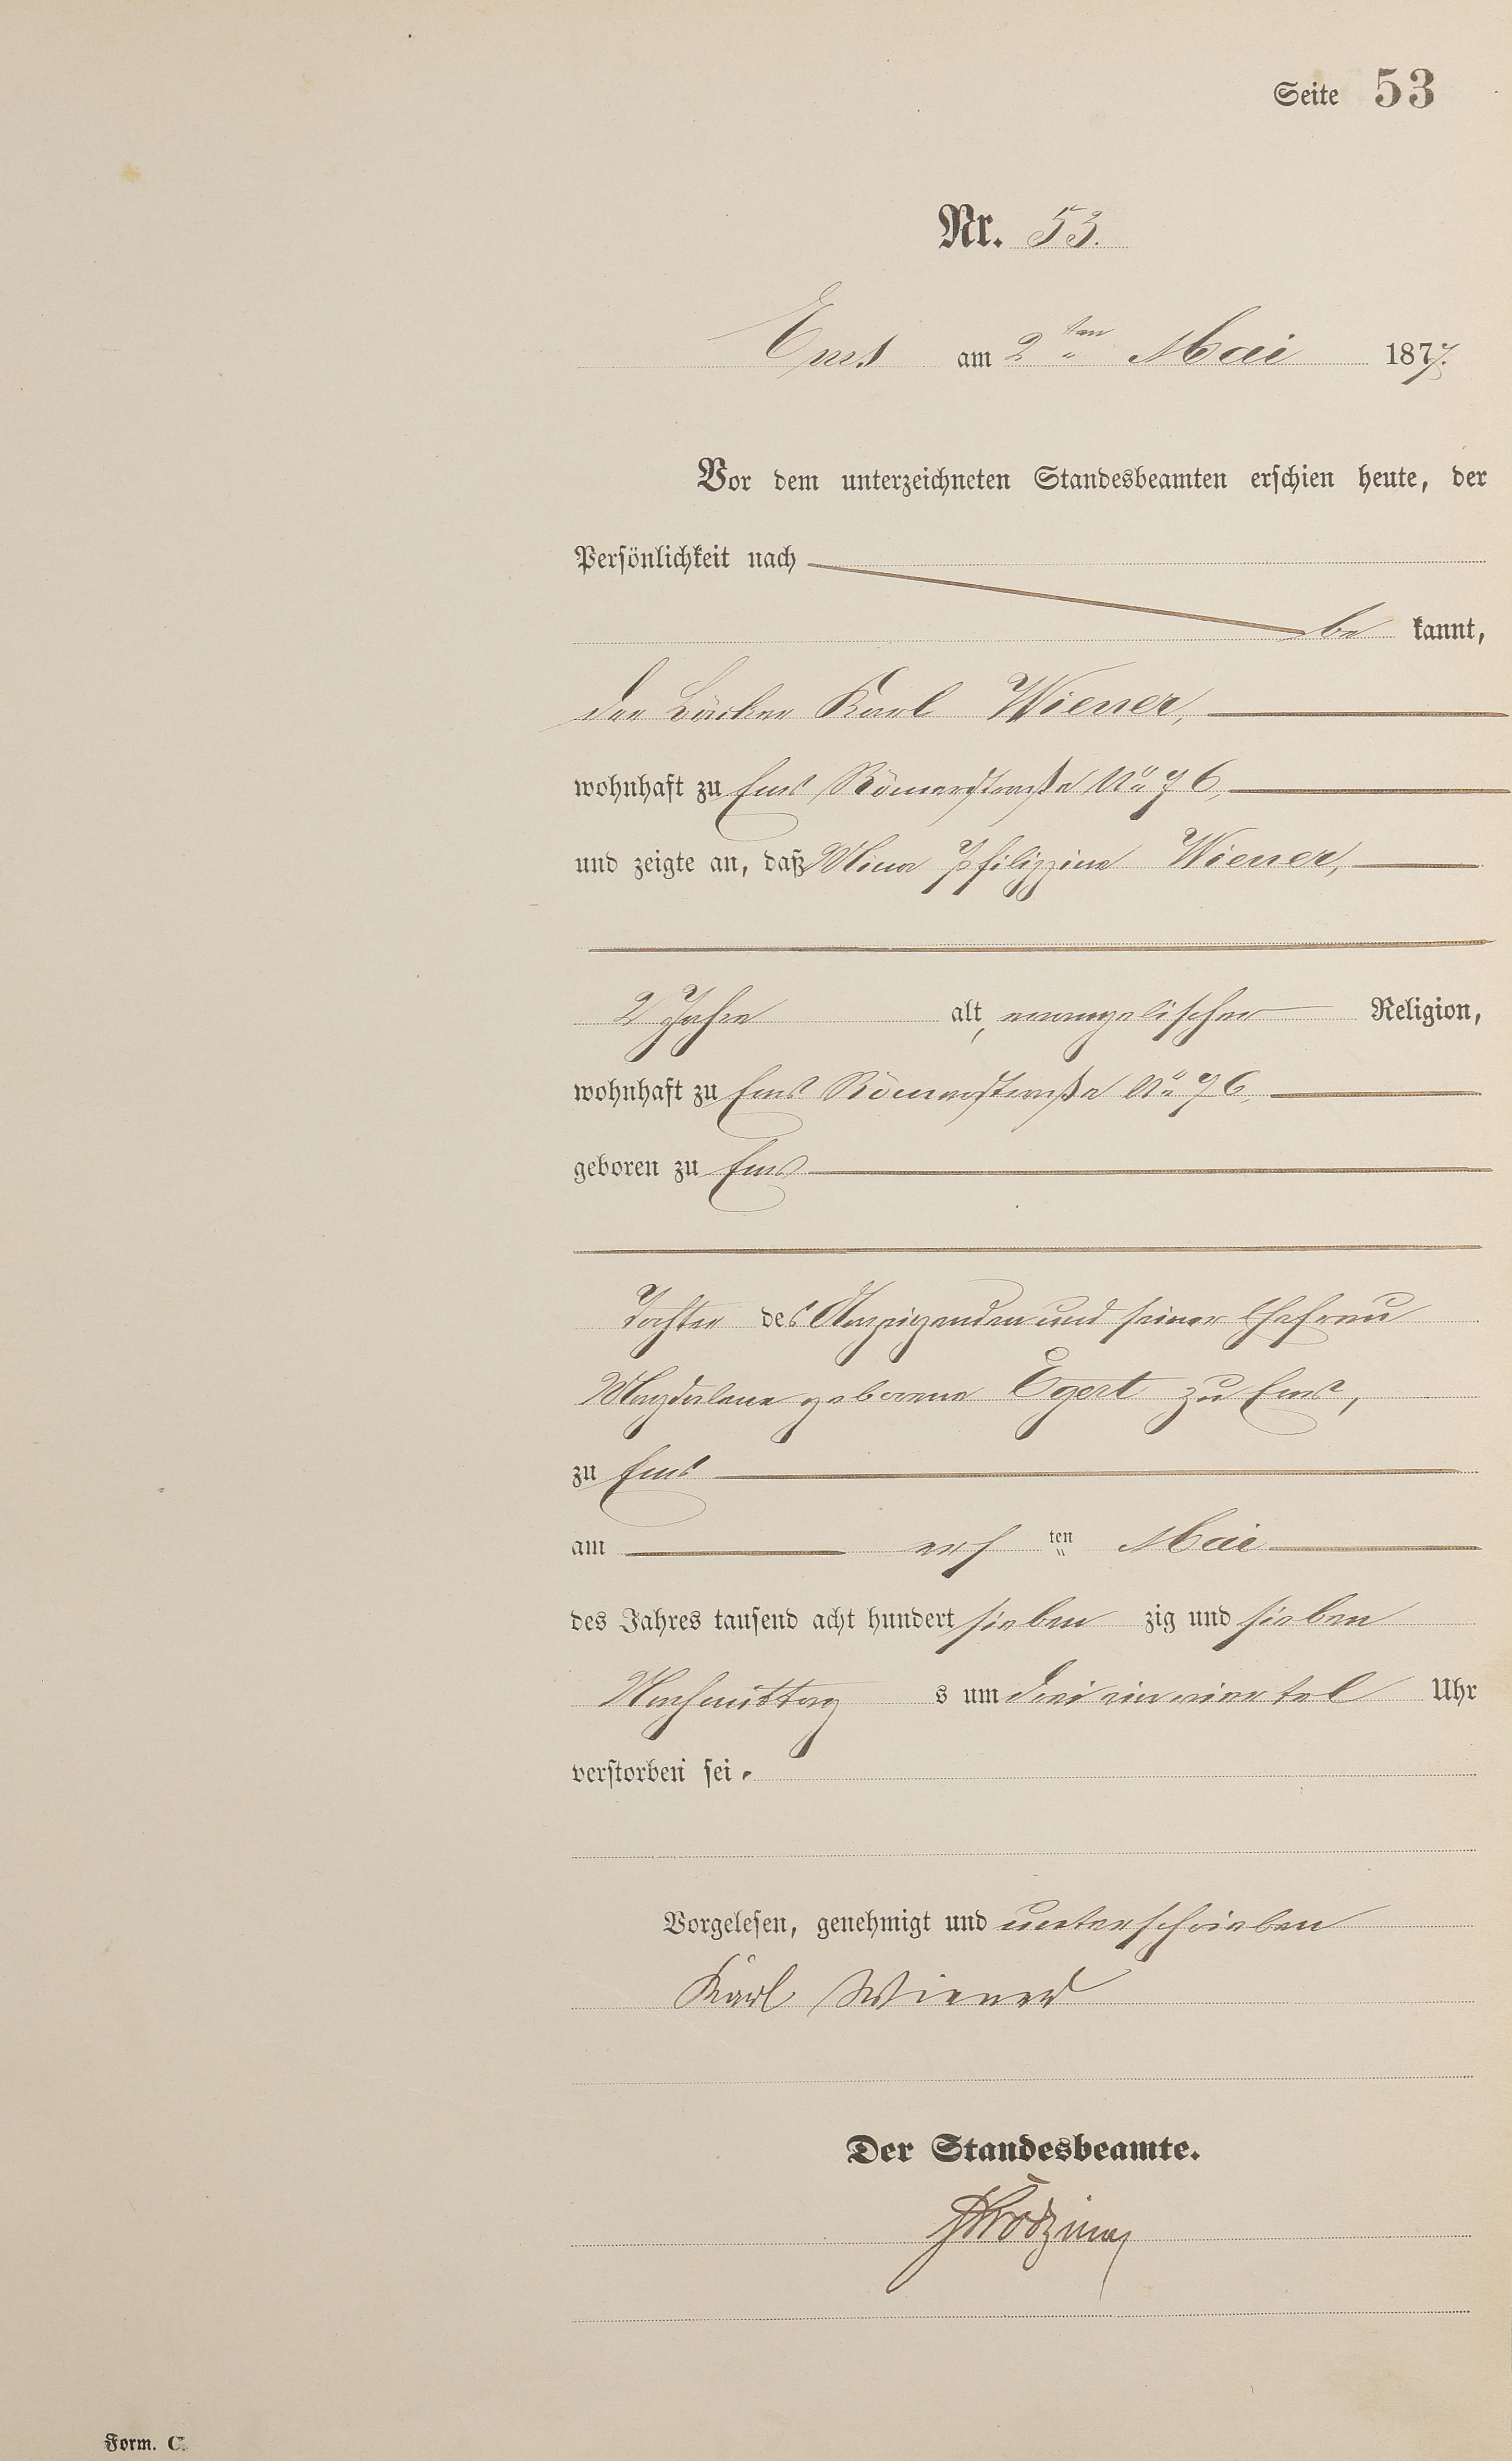 Seite 53
Nr. 53.
Ems am 2ten Mai 1877.
Vor dem unterzeichneten Standesbeamten erschien heute, der
Persönlichkeit nach
be kannt,
der Bäcker Karl Wiener,
wohnhaft zu Ems Römerstraße No 76,
und zeigte an, daß Mina Philippine Wiener,
2 Jahre alt, evangelischer Religion,
wohnhaft zu Ems Römerstraße No 76,
geboren zu Ems
Tochter des Anzeigenden und seiner Ehefrau
Magdalena geborene Egert zu Ems,
zu Ems
am ersten Mai
des Jahres tausend acht hundert sieben zig und sieben
Nachmittags um drei ein viertel Uhr
verstorben sei.
Vorgelesen, genehmigt und unterschrieben
Karl Wiener
Der Standesbeamte.
Form. C.